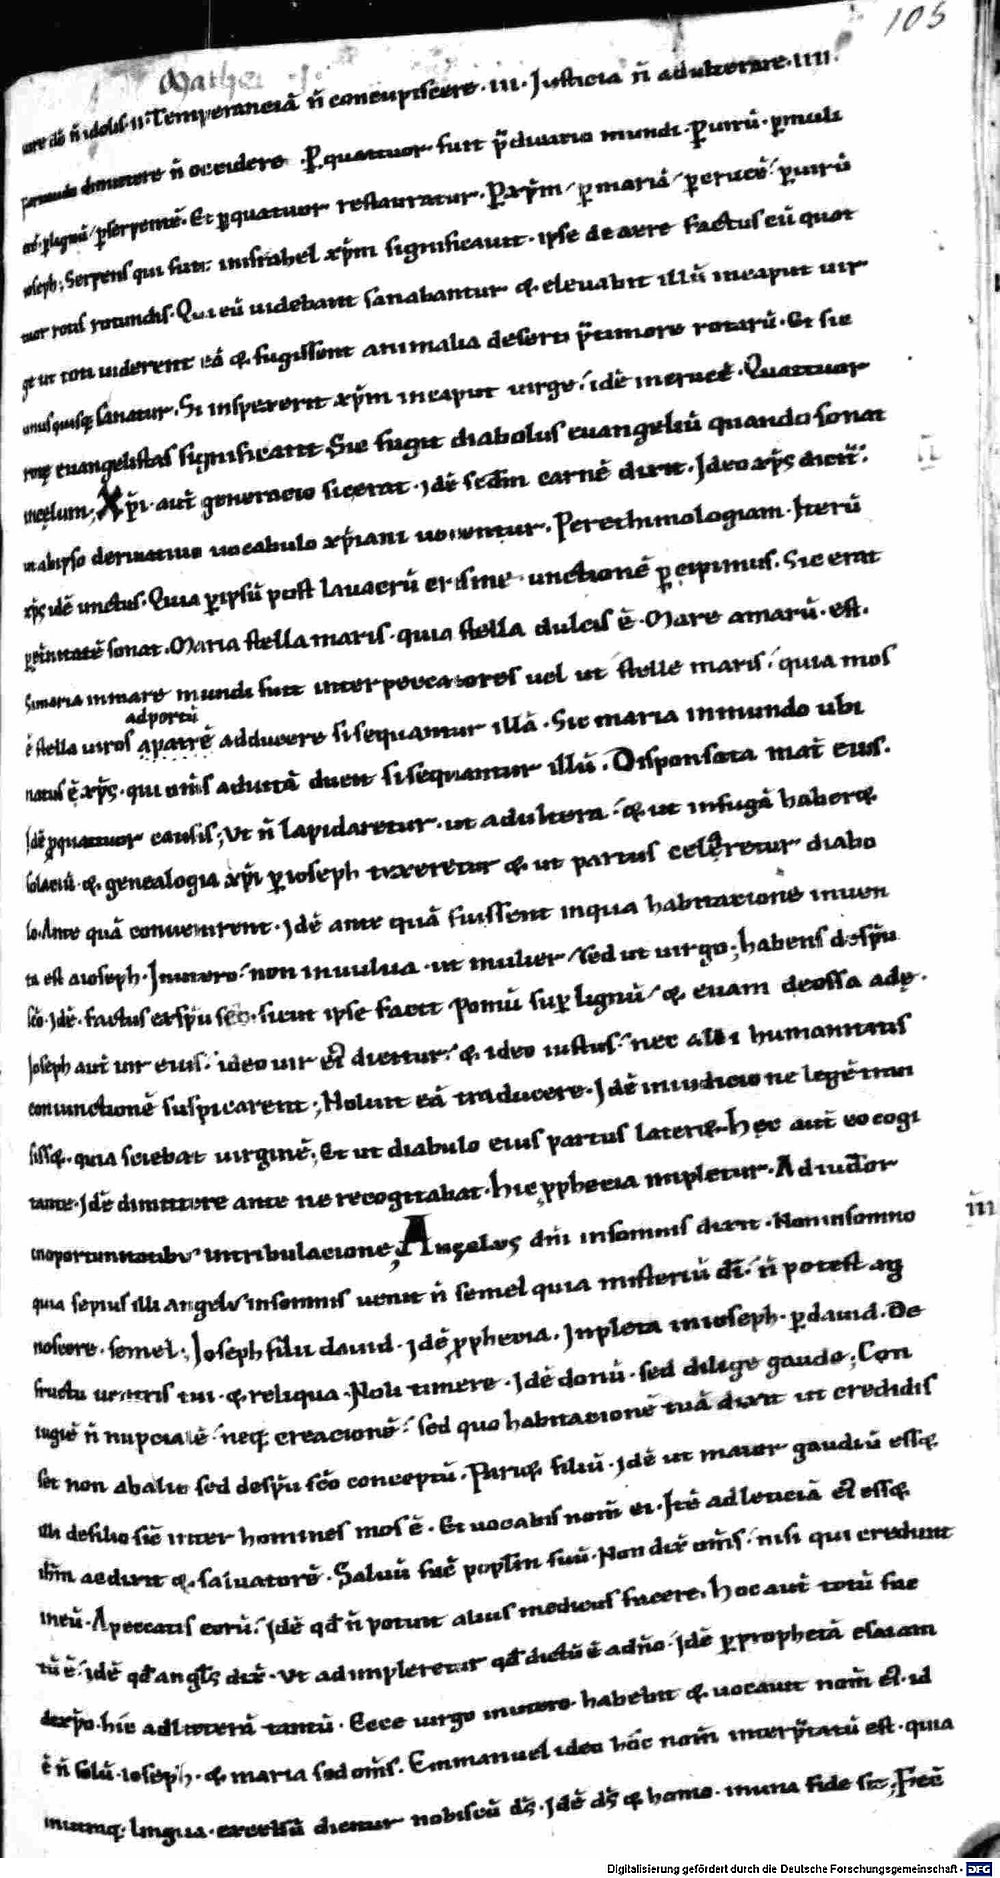 105
Mathe
are dō n̄ idolis. II. Temperanciā n̄ concupiscere. III. Iusticia n̄ adulterare. IIII.
dimittere n̄ occidere. P quattuor sunt mundi. P uirū. p muli
erē. p lignū / p serpentē. Et p quatuor restauratur. P xp̄m / p mariā / p crucē / p uirū
ioseph; Serpens qui fuit in israhel xp̄m significauit. ipse de aere factus cū quat
tuor rotis rotundis. Qui eū uidebant sanabantur & eleuabit illū in caput uir
ge ut uiderent eā & fugissent animalia deserti p̄ timore rotarū. Et sic
unusquisq; sanatur. Si insperent xp̄m in caput uirge / idē in crucē. Quattuor
rotę euangelistas significant Sic fugit diabolus euangeliū quando sonat
in cęlum; Xp̄i aut̄ generacio sic erat. idē scdm carnē dixit. Ideo xp̄s dicit̄:
ut ab ipso deriuatiuo uocabulo xp̄iani uocentur. Per ethimologiam. Iterū
xp̄s idē unctus. Quia p ipsū post lauacrū crisme unctionē p cipimus. Sic erat
sonat. Maria stella maris. quia stella dulcis ē. Mare amarū. est.
Si maria in mare mundi fuit inter peccatores uel ut stelle maris / quia mos
ad portū
ē stella uiros a patrē adducere si sequantur illā. Sic maria in mundo ubi
natus ē xp̄s. qui om̄s ad uitā ducit si sequantur illū. Disponsata mat̄ eius.
Idē p quattuor causis; Ut n̄ lapidaretur. ut adultera / & ut in fugā haber&
solaciū. & genealogia xp̄i p ioseph texeretur & ut partus celeretur diabo
lo. Ante quā conuenirent. idē ante quā fuissent in qua habitacione inuen
ta est a ioseph. In utero / non in uulua. ut mulier / sed ut uirgo; habens de sp̄u
sc̄o. idē. factus et sp̄u sc̄o. sicut ipse facit pomū sup lignū / & euam de ossa adę.
Ioseph aut̄ uir eius / ideo uir ei dicitur / & ideo iustus / nec alii humanitatis
coniunctionē suspicarent; Noluit eā traducere. Idē in iudicio ne legē tran
siss&. quia sciebat uirginē; Et ut diabulo eius partus later&. Hęc aut̄ eo cogi
tante. Idē dimittere ante ne recogitabat. hic pphecia impletur. Adiutor
in oportunitatibus in tribulacione; Angelus dn̄i in somnis dixit. Non in somno
quia sepius illi angelus in somnis uenit n̄ semel quia misteriū di n̄ potest ag
noscere. semel; Ioseph filii dauid. idē pphecia. Inpleta in ioseph. p dauid. De
fructu uentris tui. & reliqua. Noli timere. Idē donū. sed dilige gaude; Con
iugiē n̄ nupcialē / neq; creacionē / sed quo habitacionē tuā dixit ut credidis
set non ab alio sed de sp̄u sc̄o conceptū. Pari& filiū. idē ut maior gaudiū ess&
illi de filio sic̄ inter homines mos ē. Et uocabis nom̄ ei. Itē ad leticiā ei ess&
ih̄m ac dixit &. saluatorē. Saluū fac̄ popl̄m suū. Non dix̄ om̄s / nisi qui credunt
in eū. A peccatis eorū / idē qd n̄ potuit alius medicus facere. Hoc aut̄ totū fac
tū ē / idē qd angl̄s dix̄. Ut adimpleretur qd dictū ē a dn̄o / idē p prophetā esaiam
de xp̄o. hic ad litterā tantū. Ecce uirgo in utero. habebit & uocauit nom̄ ei. id
ē n̄ solū. ioseph. & maria sed om̄s. Emmanuel ideo hōc nom̄ interp̄tatū est. quia
lingua. excelsū dicitur nobiscū ds̄. Idē ds̄ & homo. in una fide sit; Fec̄
II
III
Digitalisierung gefördert durch die Deutsche Forschungsgemeinschaft - DFG